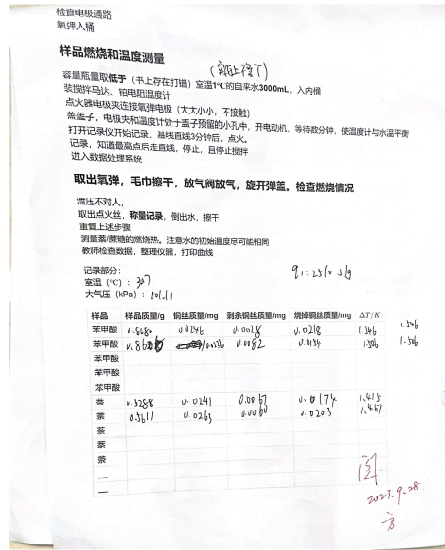 检查电极通路
氧弹入桶
样品燃烧和温度测量
容量瓶量取低于（书上存在打错）室温1℃的自来水3000mL，入内桶
装搅拌马达、铂电阻温度计
点火器电极夹连接氧弹电极（大大小小，不接触）
盖盖子，电极夹和温度计处于盖子预留的小孔中，开电动机，等待数分钟，使温度计与水温平衡
打开记录仪开始记录，基线直线3分钟后，点火。
记录，知道最高点后走直线，停止，且停止搅拌
进入数据处理系统
取出氧弹，毛巾擦干，放气阀放气，旋开弹盖。检查燃烧情况
泄压不对人，
取出点火丝，称量记录，倒出水，擦干
重复上述步骤
测量萘/蔗糖的燃烧热。注意水的初始温度尽可能相同
教师检查数据，整理仪器，打印曲线
记录部分：
室温（℃）：
大气压（kPa）：101.11
样品 样品质量/g 铜丝质量/mg 剩余铜丝质量/mg 烧掉铜丝质量/mg ΔT/K
苯甲酸 0.0246 0.0028 0.0218 1.546
苯甲酸 0.0236 0.0082 0.0154 1.506 1.506
苯甲酸
苯甲酸
苯甲酸
萘 0.5288 0.0241 0.0067 0.0174 1.415
萘 0.5611 0.0263 0.0060 0.0203 1.467
萘
萘
萘
—
—
2023.9.28